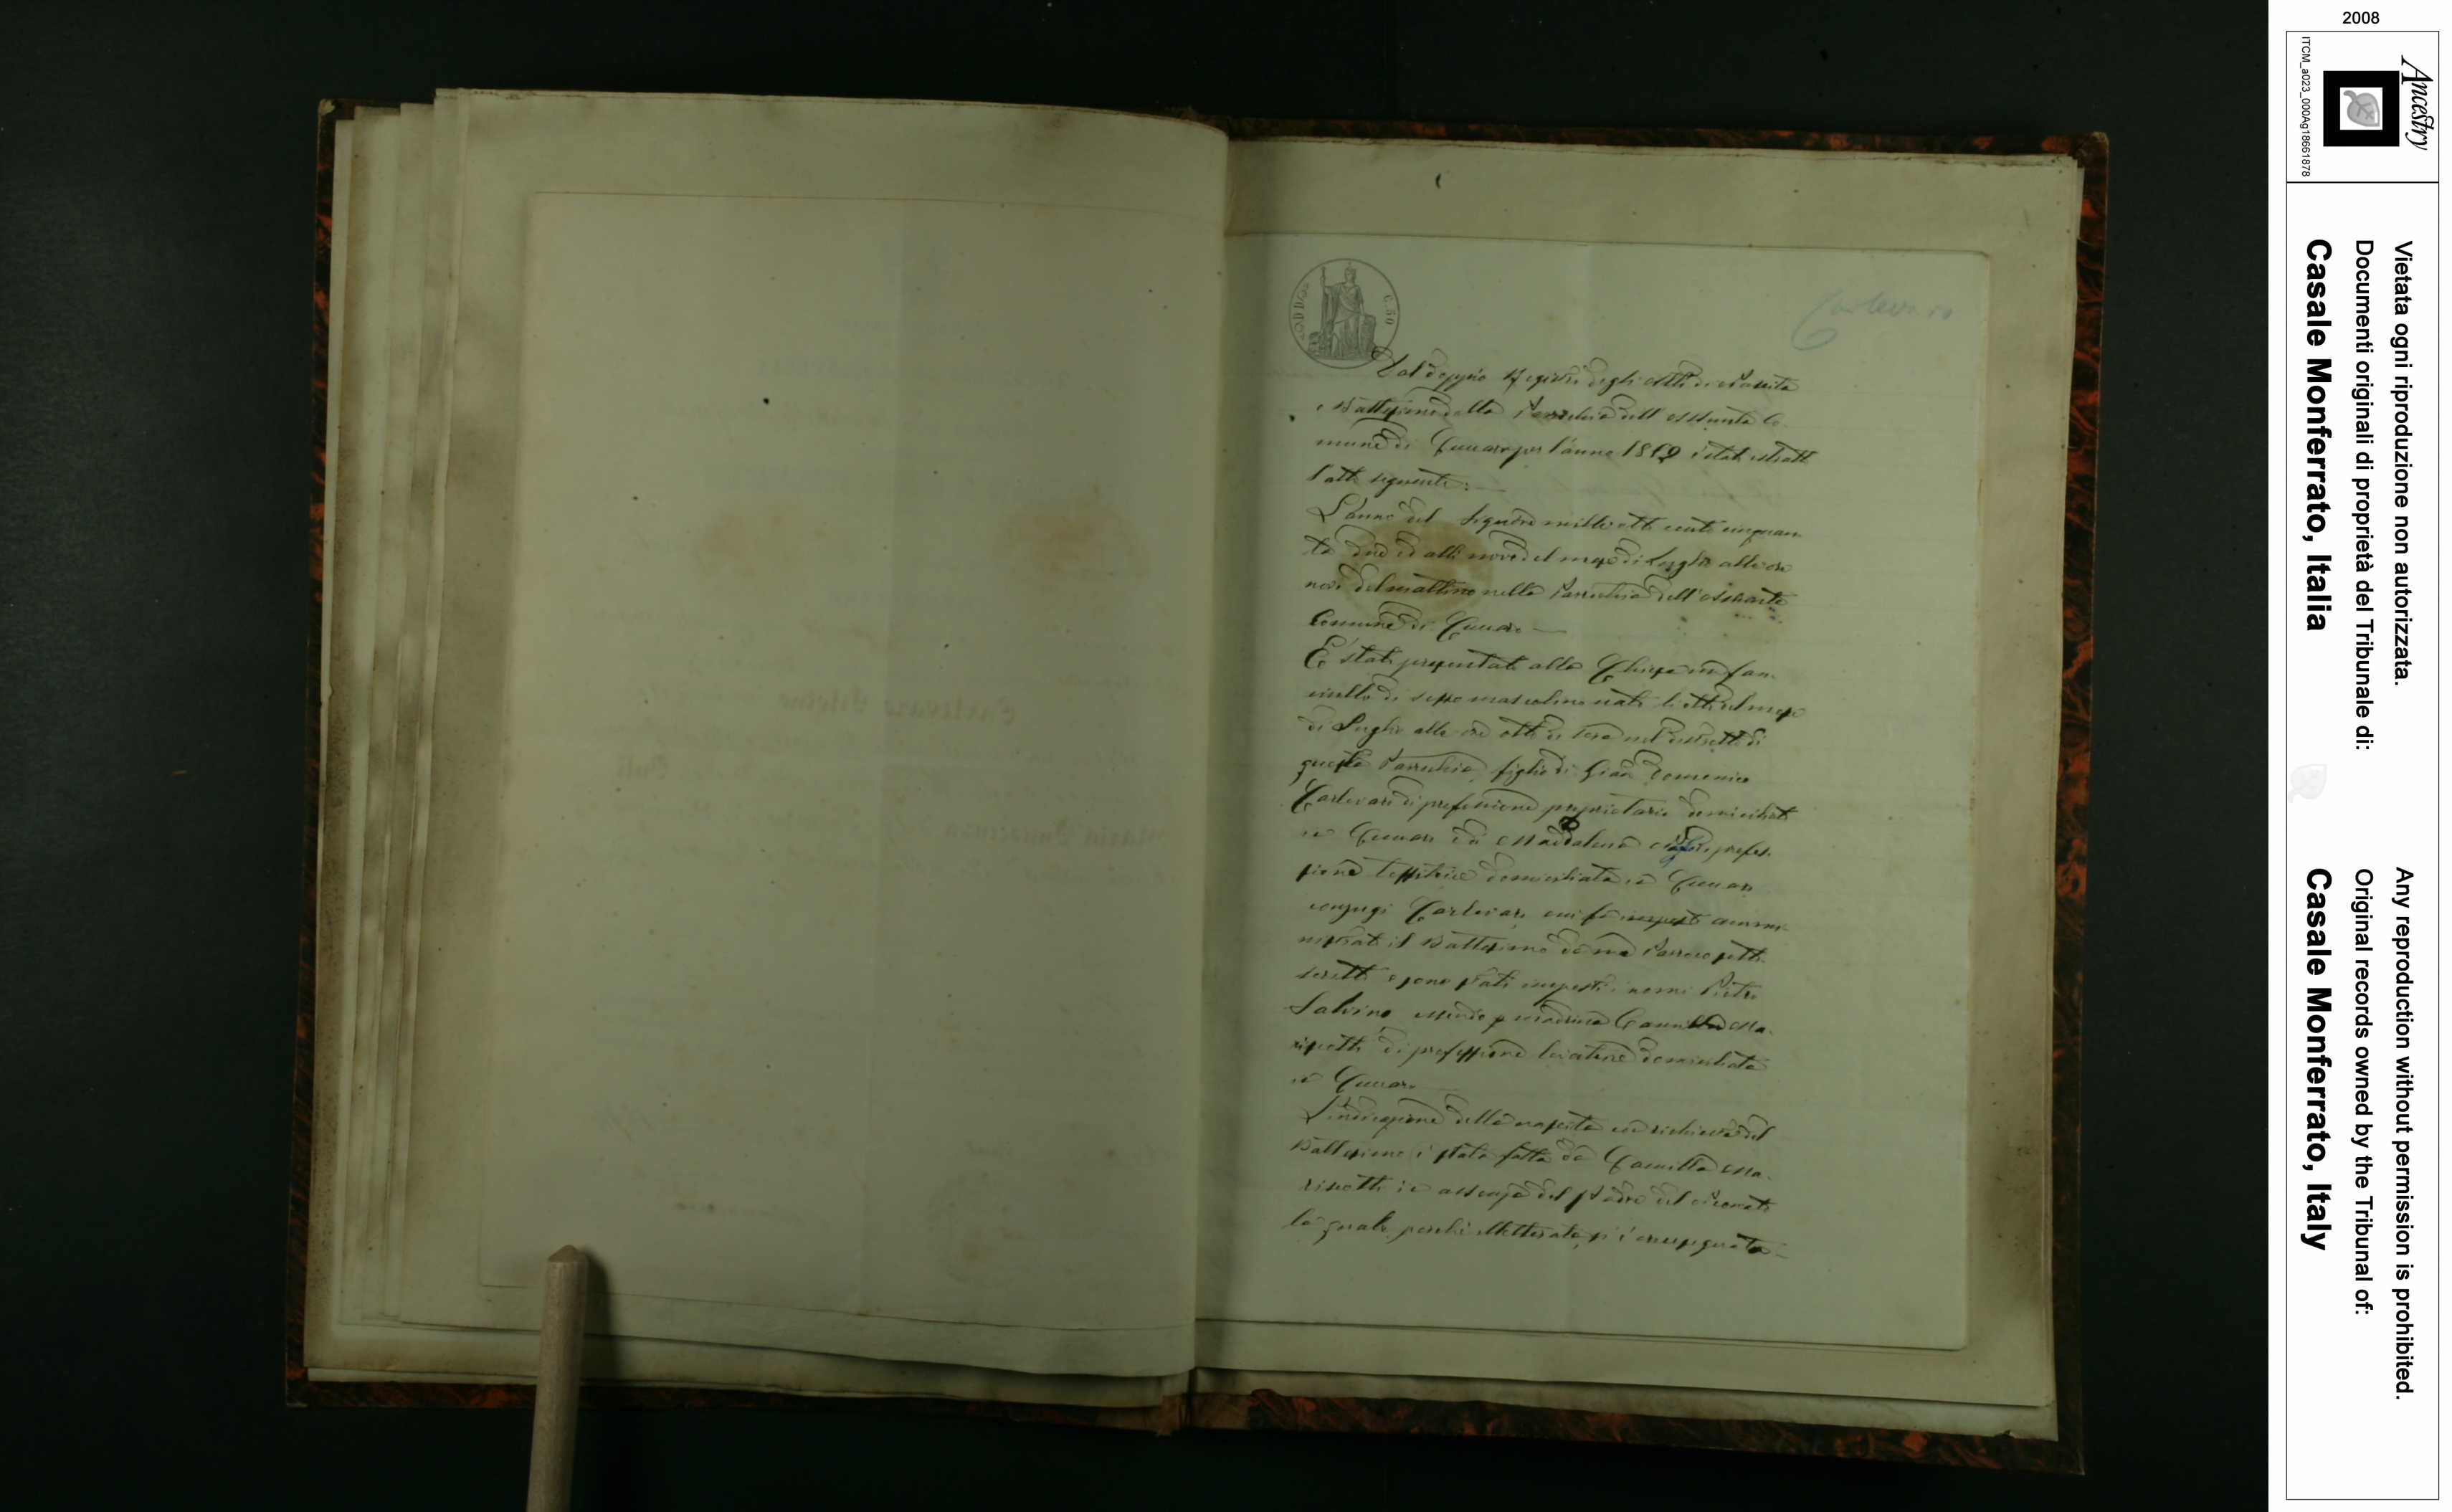 Carlevaro
C. 50
Dal doppio Registro degli Atti di Nascita
e Battesimo della Parrochia dell'Assunta Co-
mune di Cuccaro per l'anno 1852 è stato estratto
l'atto seguente:
L'anno del Signore mille otto cento cinquan-
ta due ed alli nove del mese di Luglio alle ore
nove del mattino nella Parrochia dell'Assunta
Comune di Cuccaro
È stato presentato alla Chiesa un fan-
ciullo di sesso mascolino nato li otto del mese
di Luglio alle ore otto di sera nel distretto di
questa Parrochia, figlio di Gian Domenico
Carlevaro di professione proprietario domiciliato
in Cuccaro e di Maddalena di profes-
sione tessitrice domiciliata in Cuccaro
conjugi Carlevaro, cui fu ammi-
nistrato il Battesimo da me Parroco sotto-
scritto e sono stati imposti i nomi Pietro
Salvino essendo madrina Camilla Ma-
risotti di professione domiciliata
in Cuccaro
L'indicazione della nascita e richiesta del
Battesimo è stata fatta da Camilla Ma-
risotti in assenza del Padre del neonato
la quale perchè illetterata si è crocesegnata
Carlevaro
Maria
2008
Ancestry
ITCM_a023_000Ag18661878
Vietata ogni riproduzione non autorizzata.
Documenti originali di proprietà del Tribunale di:
Casale Monferrato, Italia
Any reproduction without permission is prohibited.
Original records owned by the Tribunal of:
Casale Monferrato, Italy